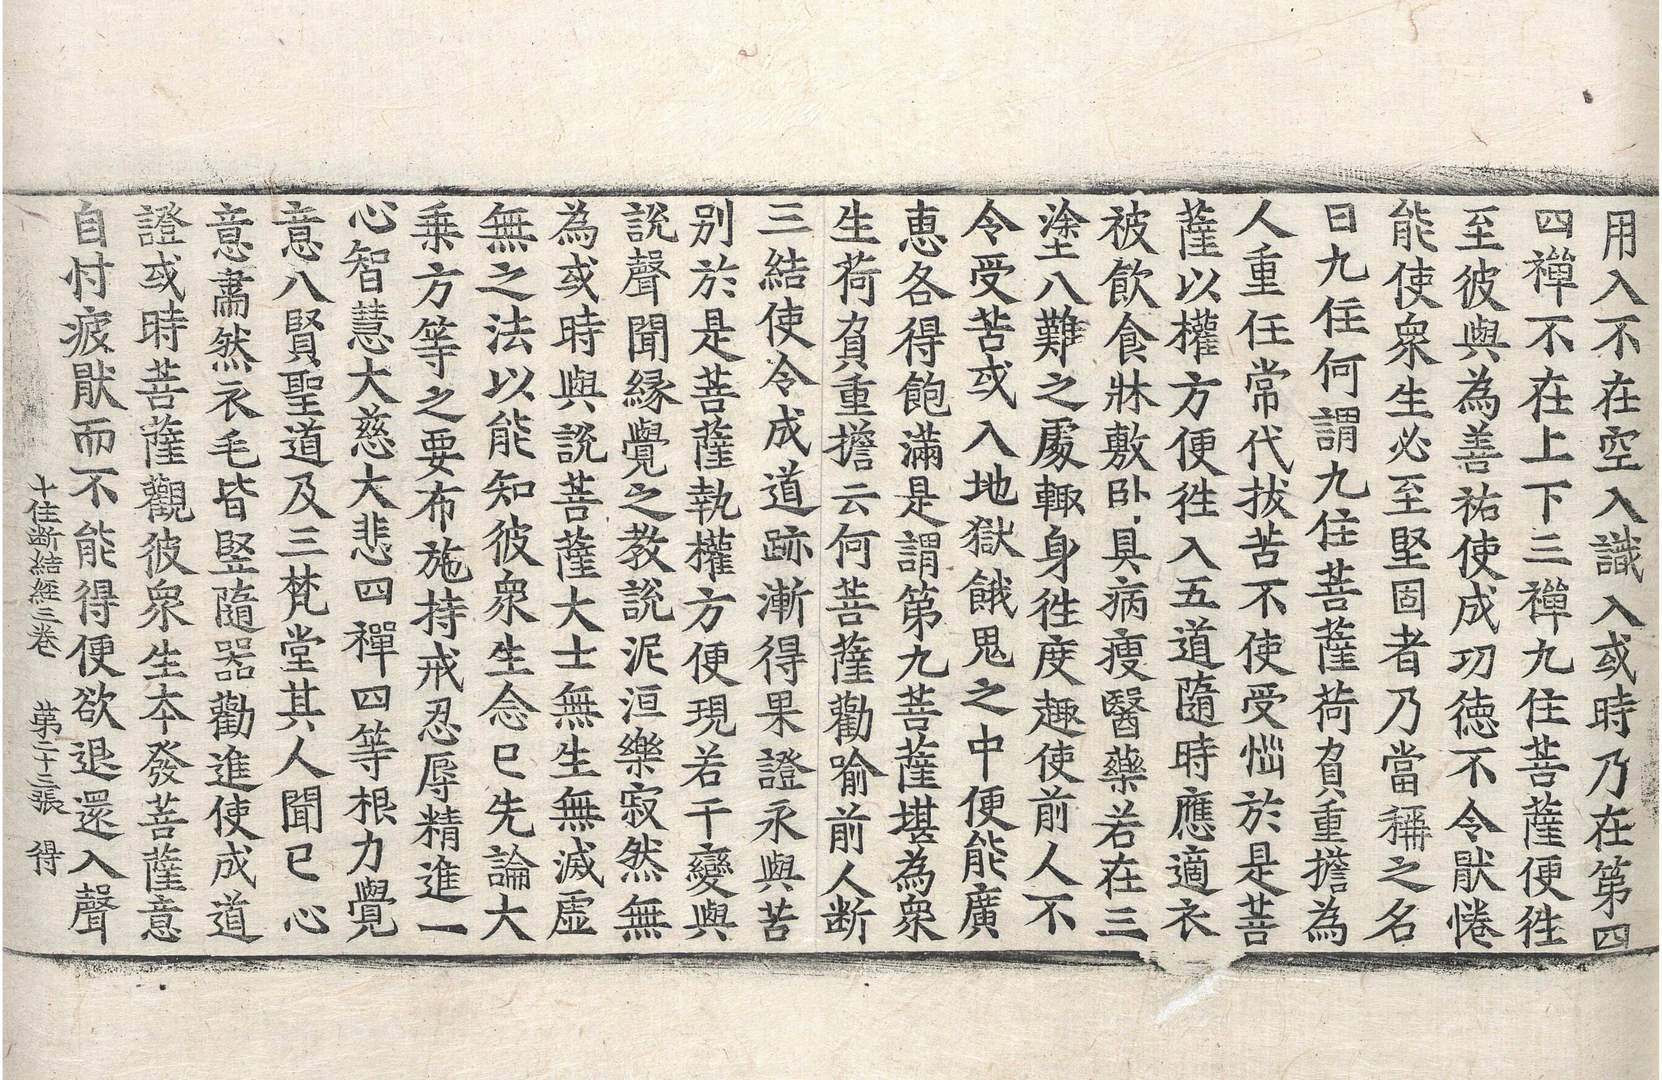 用入不在空入識入或時乃在第四
四禪不在上下三禪九住菩薩便徃
至彼與為善祐使成功德不令猒惓
能使衆生必至堅固者乃當稱之名
曰九住何謂九住菩薩荷負重擔為
人重任常代拔苦不使受惱於是菩
薩以權方便徃入五道隨時應適衣
被飲食牀敷卧具病瘦醫藥若在三
塗八難之處輙身徃度趣使前人不
令受苦或入地獄餓鬼之中便能廣
惠各得飽滿是謂第九菩薩堪為衆
生荷負重擔云何菩薩勸喻前人斷
三結使令成道跡漸得果證永與苦
別於是菩薩執權方便現若干變與
說聲聞縁覺之教說泥洹樂寂然無
為或時與說菩薩大士無生無滅虛
無之法以能知彼衆生念已先論大
乗方等之要布施持戒忍辱精進一
心智慧大慈大悲四禪四等根力覺
意八賢聖道及三梵堂其人聞已心
意肅然衣毛皆竪隨器勸進使成道
證或時菩薩觀彼衆生本發菩薩意
自忖疲猒而不能得便欲退還入聲
十住断結経三卷 第二十三張 得